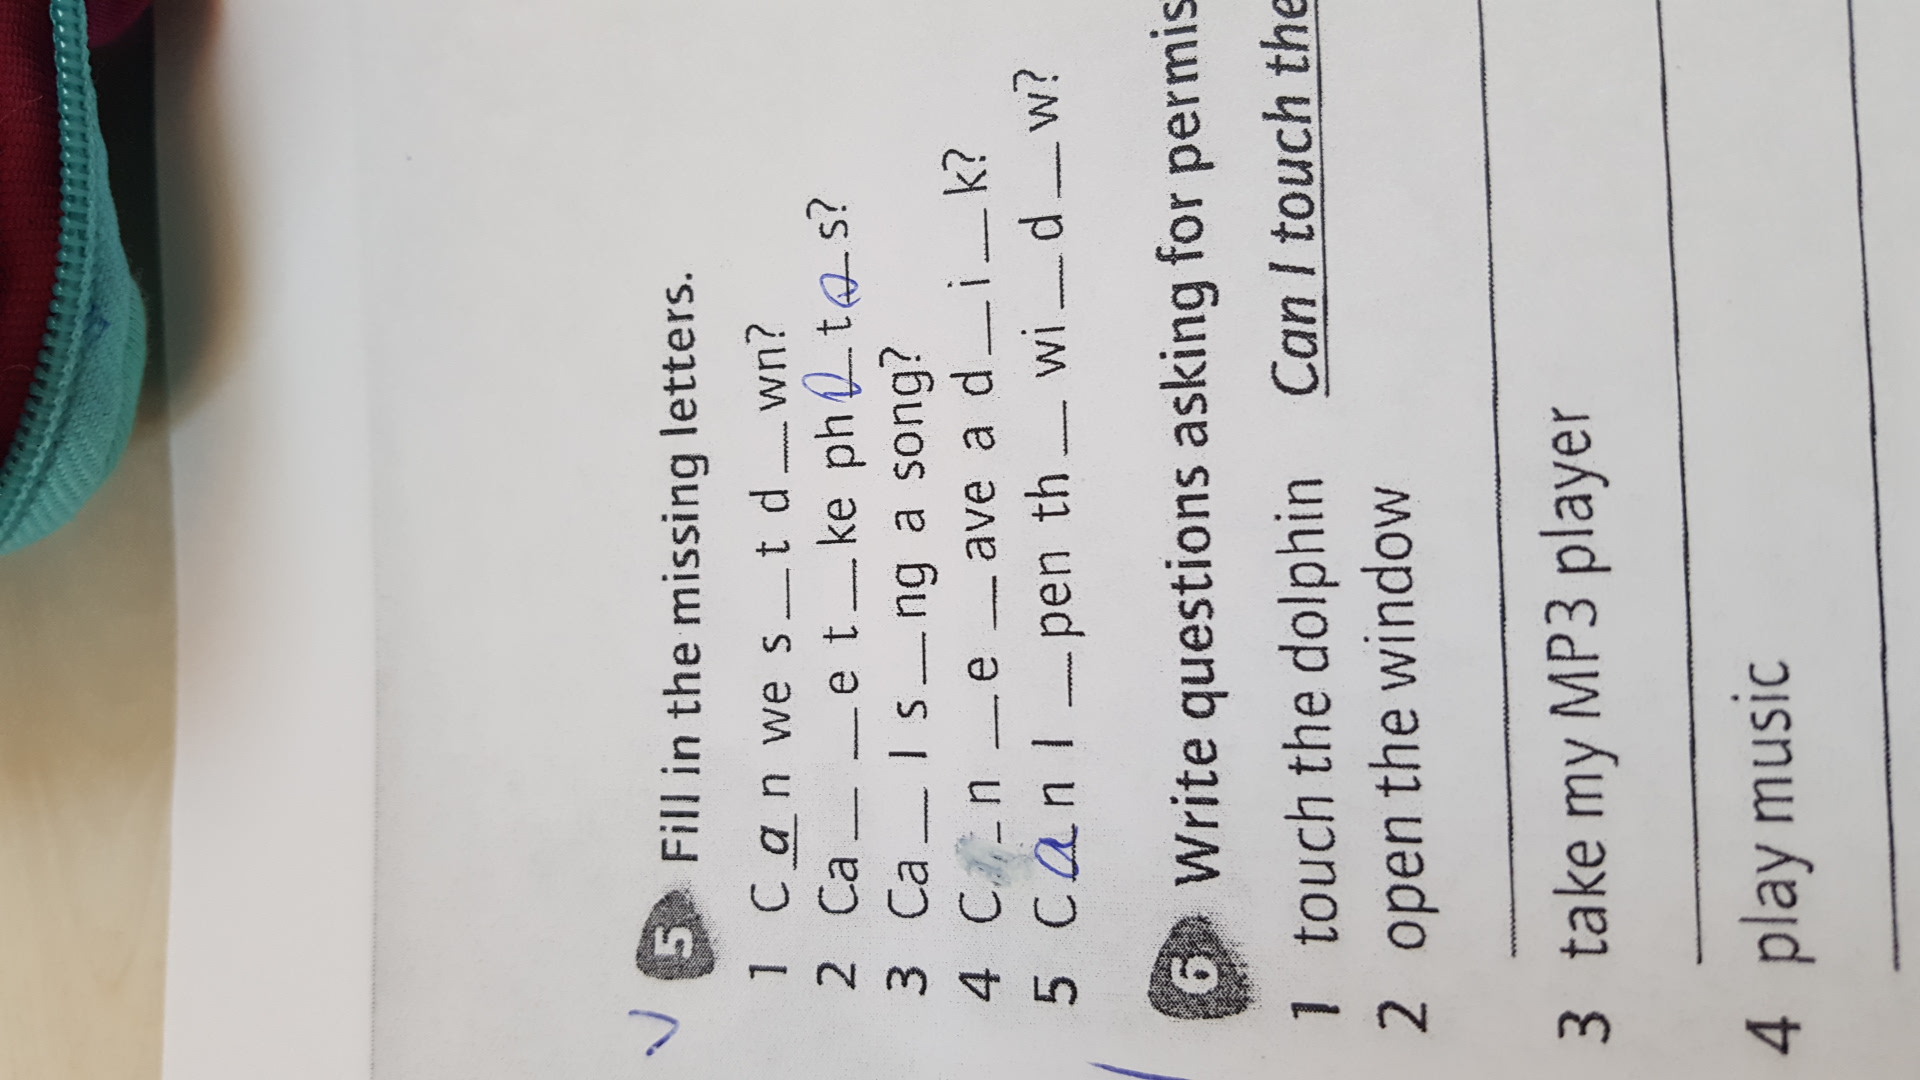 5 Fill in the missing letters.
1 C a n we s _ t d _ wn?
2 Ca _ _ e t _ ke ph o _ t o s?
3 Ca _ I s _ ng a song?
4 C _ n _ e _ ave a d _ i _ k?
5 C a n I _ pen th _ wi _ d _ w?
6 Write questions asking for permis
1 touch the dolphin Can I touch the
2 open the window
3 take my MP3 player
4 play music